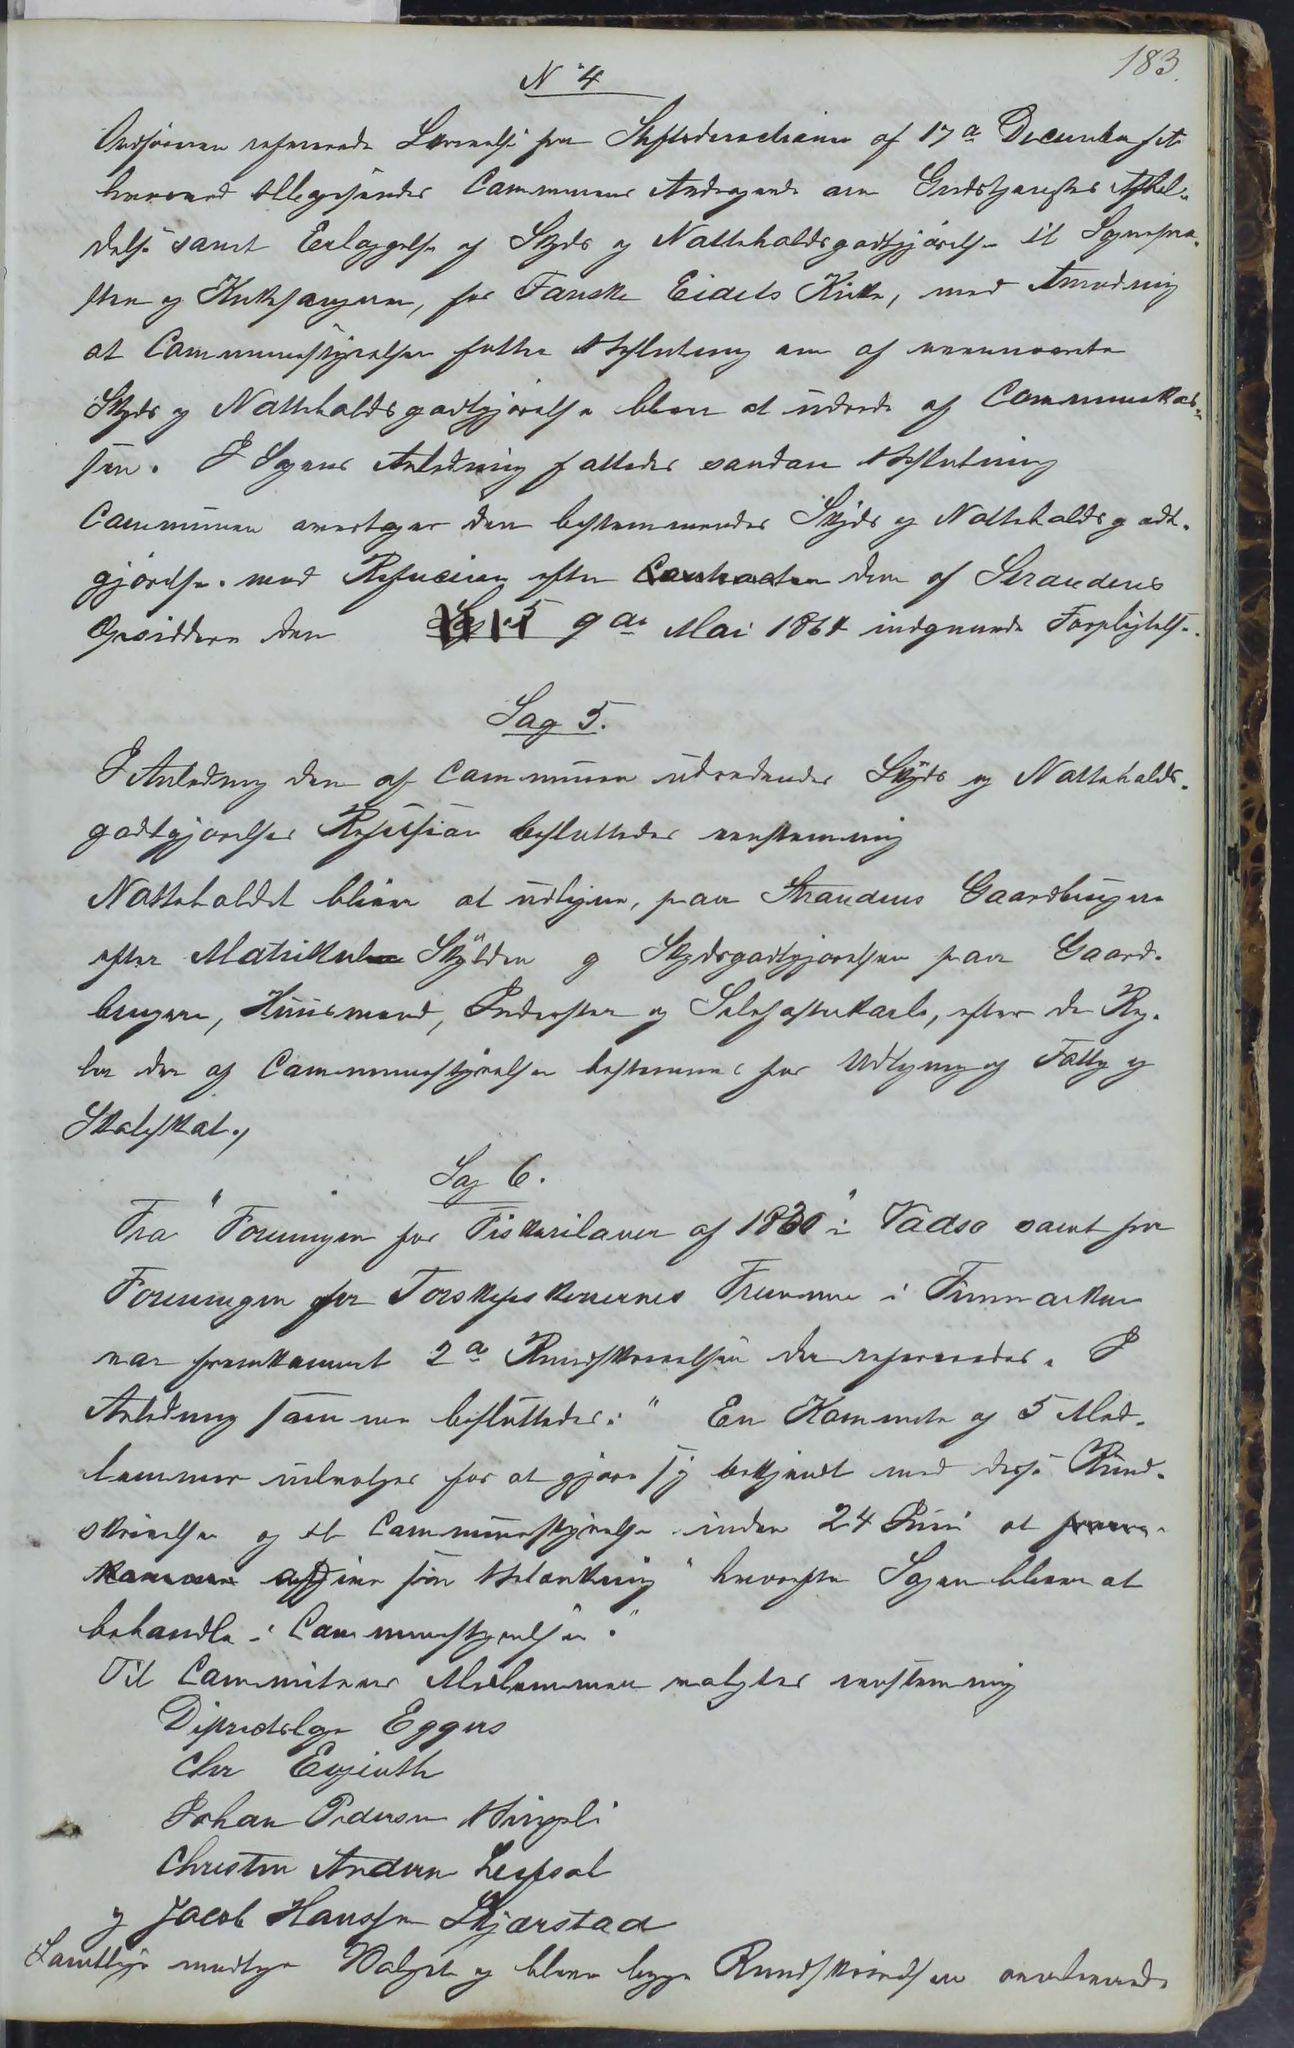 183.
N° 4
Ordføreren refererede Skrivelse fra Stiftsdirectionen af 17de December sidst
hvorved tillige sendes Communens Andragende om Gudstjenestes Afhol-
delse samt Erlæggelse af Skyds og Natteholdsgodtgjørelse til Sognepræ-
sten og Kirkesangeren, for Fauske Eidets Kirke, med Anmodning
at Communestyrelsen fatter Beslutning om af nævnte
Skyds og Natteholdsgodtgjørelse bliver at udrede af Communekas-
sen. I Sagens Anledning fattedes saadan Beslutning
Communen overtager den bestemmende Skyds og Natteholdsgodt-
gjørelse mod Refusion efter Contracten den af Strandens
Opsiddere den Sag 5 9de Mai 1864 indgaaede Forpligtelse.
Sag 5.
I Anledning den af Communen udredende Skyds og Natteholds-
godtgjørelses Refusion besluttedes eenstemmig
Natteholdet bliver at udligne, paa Strandens Gaardbrugere
efter Matrikul Skylden og Skydsgodtgjørelsen paa Gaard-
brugere, Huusmænd, Inderster og Selvfosterkarle, efter de Reg-
ler der af Communestyrelsen bestemmes for Udligning af Fattig og
Skoleskat.
Sag 6.
Fra "Foreningen for Fiskerilaver af 1830" i Vadsø samt fra
Foreningen for Torskefiskeriernes Fremme i Finmarken
var fremkommet 2de Rundskrivelser der refereredes. I
Anledning som var besluttedes: "En Kommite af 5 Med-
lemmer udvælges for at gjøre sig bekjendt med disse Rund-
skrivelser og til Communestyrelsen inden 24 Juni at frem-
komme afgive sin Betænkning" hvorefter Sagen bliver at
behandle i Communestyrelsen."
Til Commiteens Medlemmer valgtes eenstemmig
Distriktslæge Eggers
Chr Evjenth
Johan Pedersen
Christen Andersen Leifset
og Jacob Hanssen Skjærstad
Samtlige modtage Valget og bliver begge Rundskrivelser